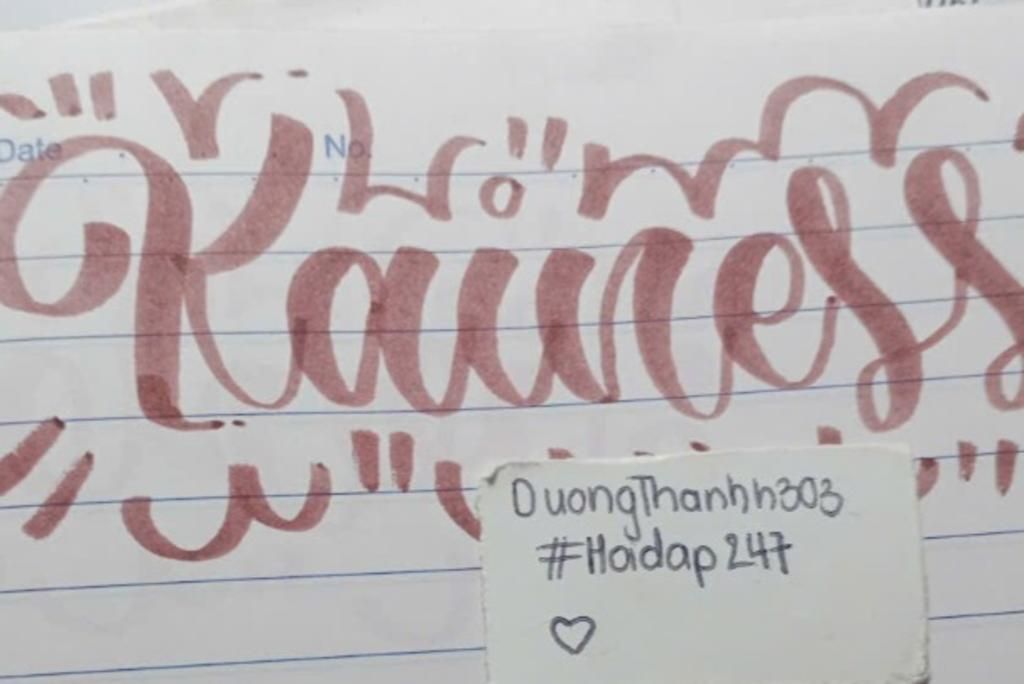 Date No.
Kainess
DuongThanhh303
#Hoidap247